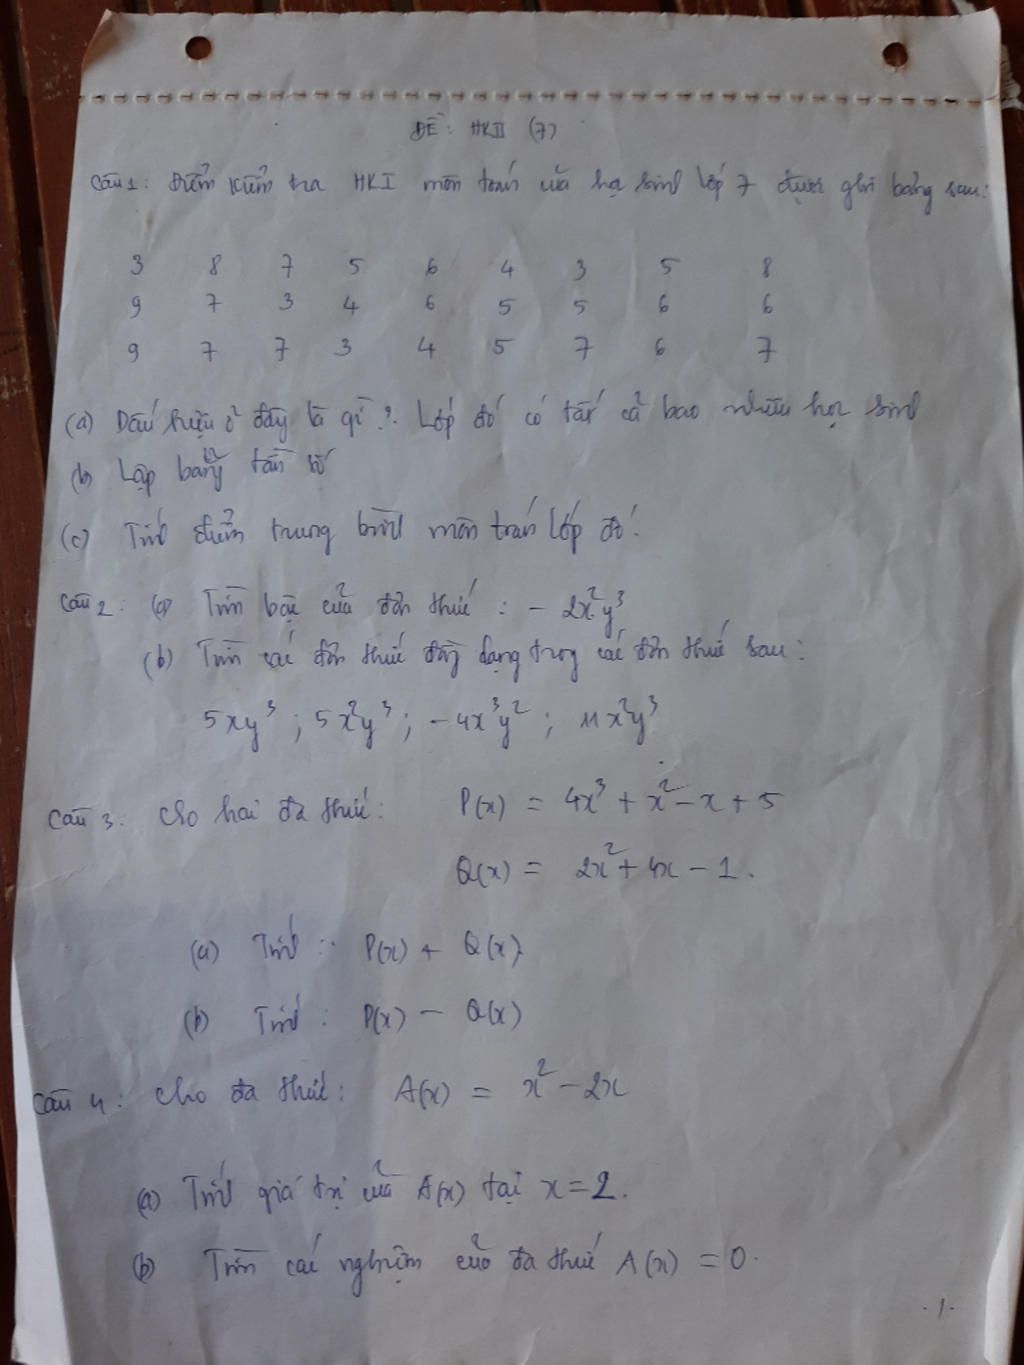 ĐỀ: HKII (7)
Câu 1: Điểm kiểm tra HKI môn toán của học sinh lớp 7 được ghi bảng sau:
3 8 7 5 6 4 3 5 8
9 7 3 4 6 5 5 6 6
9 7 7 3 4 5 7 6 7
(a) Dấu hiệu ở đây là gì?. Lớp đó có tất cả bao nhiêu học sinh
(b) Lập bảng tần số
(c) Tính điểm trung bình môn toán lớp đó.
Câu 2: (a) Tìm bậc của đơn thức: - 2x²y³
(b) Tìm các đơn thức đồng dạng trong các đơn thức sau:
5xy³ ; 5x²y³ ; -4x³y² ; 11x²y³
Câu 3: Cho hai đa thức: P(x) = 4x³ + x² - x + 5
Q(x) = 2x² + 4x - 1.
(a) Tính: P(x) + Q(x)
(b) Tính: P(x) - Q(x)
Câu 4: Cho đa thức: A(x) = x² - 2x
(a) Tính giá trị của A(x) tại x = 2.
(b) Tìm các nghiệm của đa thức A(x) = 0.
.1.